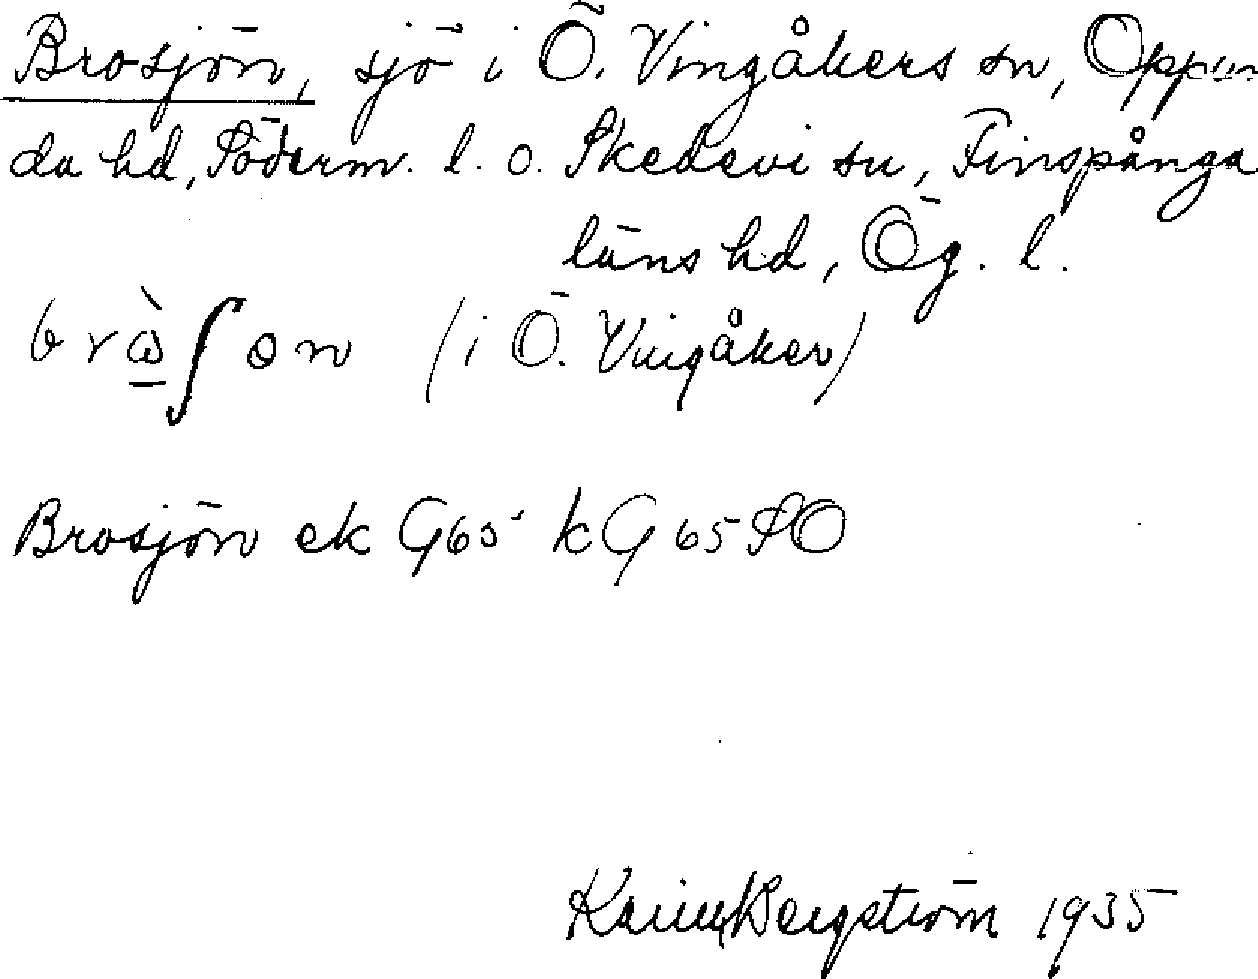 Brosjön, sjö i Ö. Vingåkers sn, Oppun
da hd, Söderm. l. o. Skedevi sn, Finspånga
läns hd, Ög. l.
(i Ö. Vingåker)
Brosjön ek G65 kG65SO
Karin Bergström 1935